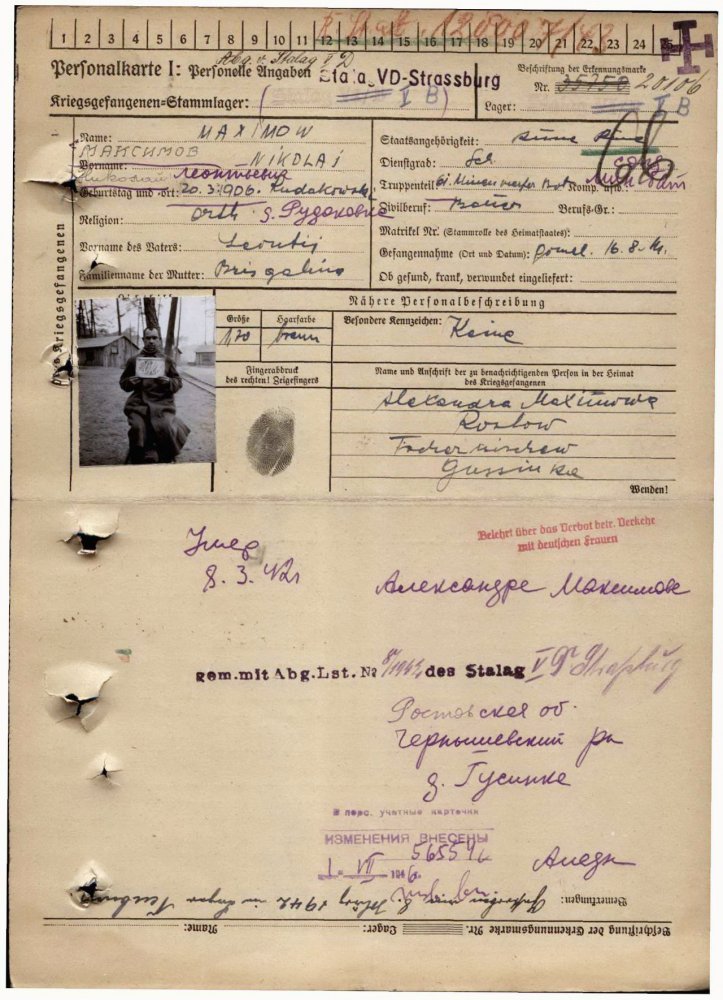 1 2 3 4 5 6 7 8 9 10 11 12 13 14 15 16 17 18 19 20 21 22 23 24 25
Personalkarte I: Personelle Angaben
Stalag VD-Strassburg
Beschriftung der Erkennungsmarke
Nr. 35750 20106
Kriegsgefangenen-Stammlager:
I B)
Lager: I B
Des Kriegsgefangenen
Name: MAXIMOW
МАКСИМОВ
Vorname: NIKOLAI
Николай Леонтьевич
Geburtstag und -ort: 20.3.1906.
Religion: orth д. Рудаковка
Vorname des Vaters: Leontij
Familienname der Mutter:
Staatsangehörigkeit:
Dienstgrad: Sol.
Truppenteil: Komp. usw.
Zivilberuf: Bauer Berufs-Gr.:
Matrikel Nr. (Stammrolle des Heimatstaates):
Gefangennahme (Ort und Datum): Gomel. 16.8.41.
Ob gesund, krank, verwundet eingeliefert:
Nähere Personalbeschreibung
Größe Haarfarbe
1,70 braun
Besondere Kennzeichen: Keine
Fingerabdruck
des rechten! Zeigefingers
Name und Anschrift der zu benachrichtigenden Person in der Heimat
des Kriegsgefangenen
Alexandra Maximowa
Rostow
Gussinka
Wenden!
Belehrt über das Verbot betr. Verkehr
mit deutschen Frauen
Умер
8.3.42г
Александре Максимове
gem.mit Abg.Lst.№ des Stalag V D Straßburg
Ростовская об.
Чернышевский рн
д. Гусинке
В перс. учетные карточки
ИЗМЕНЕНИЯ ВНЕСЕНЫ
1 VII 1946
Bemerkungen:
Name: Lager: Beschriftung der Erkennungsmarke Nr.